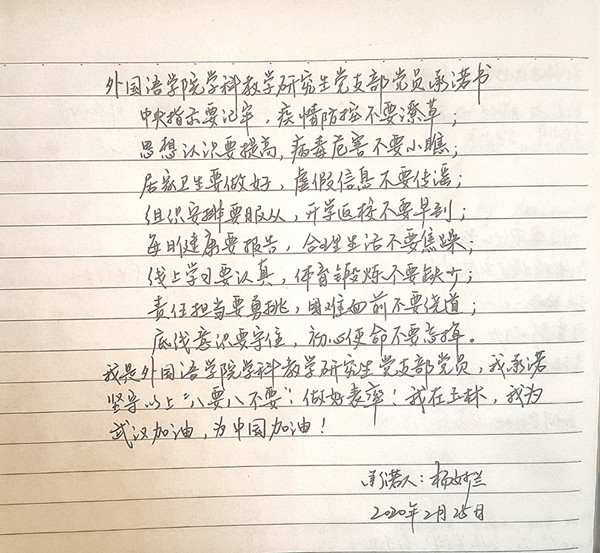 外国语学院学科教学研究生党支部党员承诺书
中央指示要记牢，疫情防控不要潦草；
思想认识要提高，病毒危害不要小瞧；
居家卫生要做好，虚假信息不要传谣；
组织安排要服从，开学返校不要早到；
每日健康要报告，合理生活不要焦躁；
线上学习要认真，体育锻炼不要缺少；
责任担当要勇挑，困难面前不要绕道；
底线意识要守住，初心使命不要忘掉。
我是外国语学院学科教学研究生党支部党员，我承诺
坚守以上“八要八不要”：做好表率！我在玉林，我为
武汉加油，为中国加油！
承诺人：杨
2020年2月25日